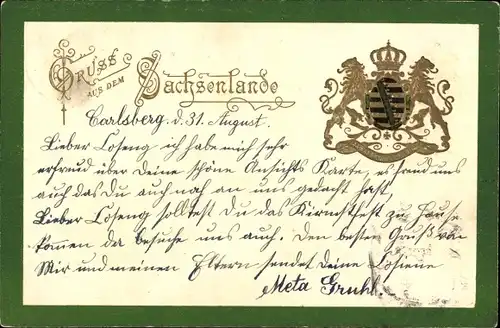 Gruss
aus dem
Sachsenlande
Carlsberg d. 31. August.
Lieber Loseng ich habe mich sehr
erfreud über Deine schöne Ansichts Karte, es freud uns
auch das Du auch noch an uns gedacht hast,
Lieber Loseng solltest Du das Kirmstfest zu Hause
kommen da besuche uns auch. Den besten Gruß von
Mir und meinen Eltern sendet deine Losiene
Meta Gruhl